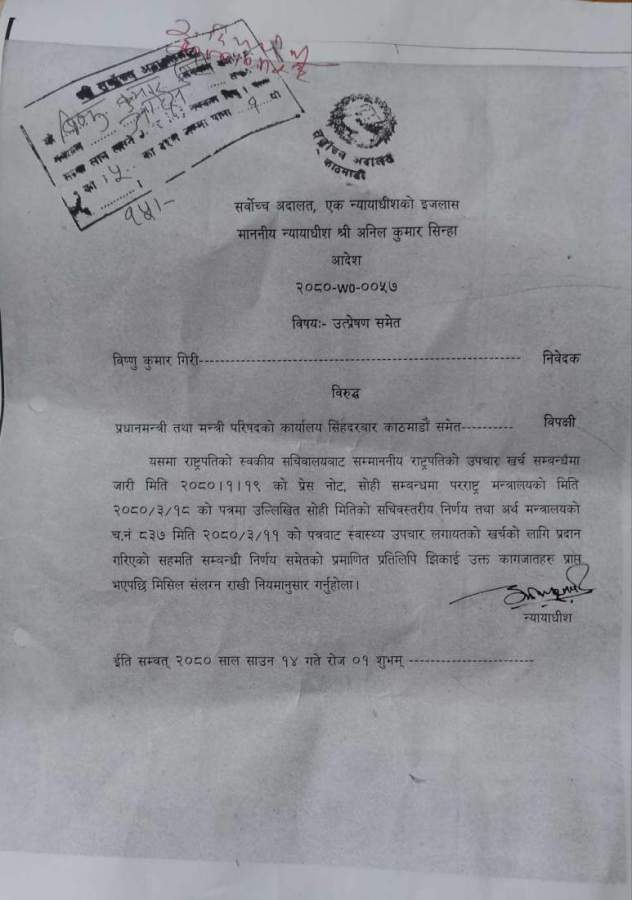 श्री सर्वोच्च अदालतमा
विष्णु कुमार
सर्वोच्च अदालत
काठमाडौं
सर्वोच्च अदालत, एक न्यायाधीशको इजलास
माननीय न्यायाधीश श्री अनिल कुमार सिन्हा
आदेश
२०८०-W0-००५७
विषयः- उत्प्रेषण समेत
विष्णु कुमार गिरी------------------------------------------------------ निवेदक
विरुद्ध
प्रधानमन्त्री तथा मन्त्री परिषदको कार्यालय सिंहदरबार काठमाडौं समेत---------- विपक्षी
यसमा राष्ट्रपतिको स्वकीय सचिवालयवाट सम्माननीय राष्ट्रपतिको उपचार खर्च सम्बन्धमा
जारी मिति २०८०।१।१९ को प्रेस नोट, सोही सम्बन्धमा परराष्ट्र मन्त्रालयको मिति
२०८०/३/१८ को पत्रमा उल्लिखित सोही मितिको सचिवस्तरीय निर्णय तथा अर्थ मन्त्रालयको
च.नं ८३७ मिति २०८०/३/११ को पत्रवाट स्वास्थ्य उपचार लगायतको खर्चको लागि प्रदान
गरिएको सहमति सम्बन्धी निर्णय समेतको प्रमाणित प्रतिलिपि झिकाई उक्त कागजातहरु प्राप्त
भएपछि मिसिल संलग्न राखी नियमानुसार गर्नुहोला।
न्यायाधीश
ईति सम्वत् २०८० साल साउन १४ गते रोज ०१ शुभम् -----------------